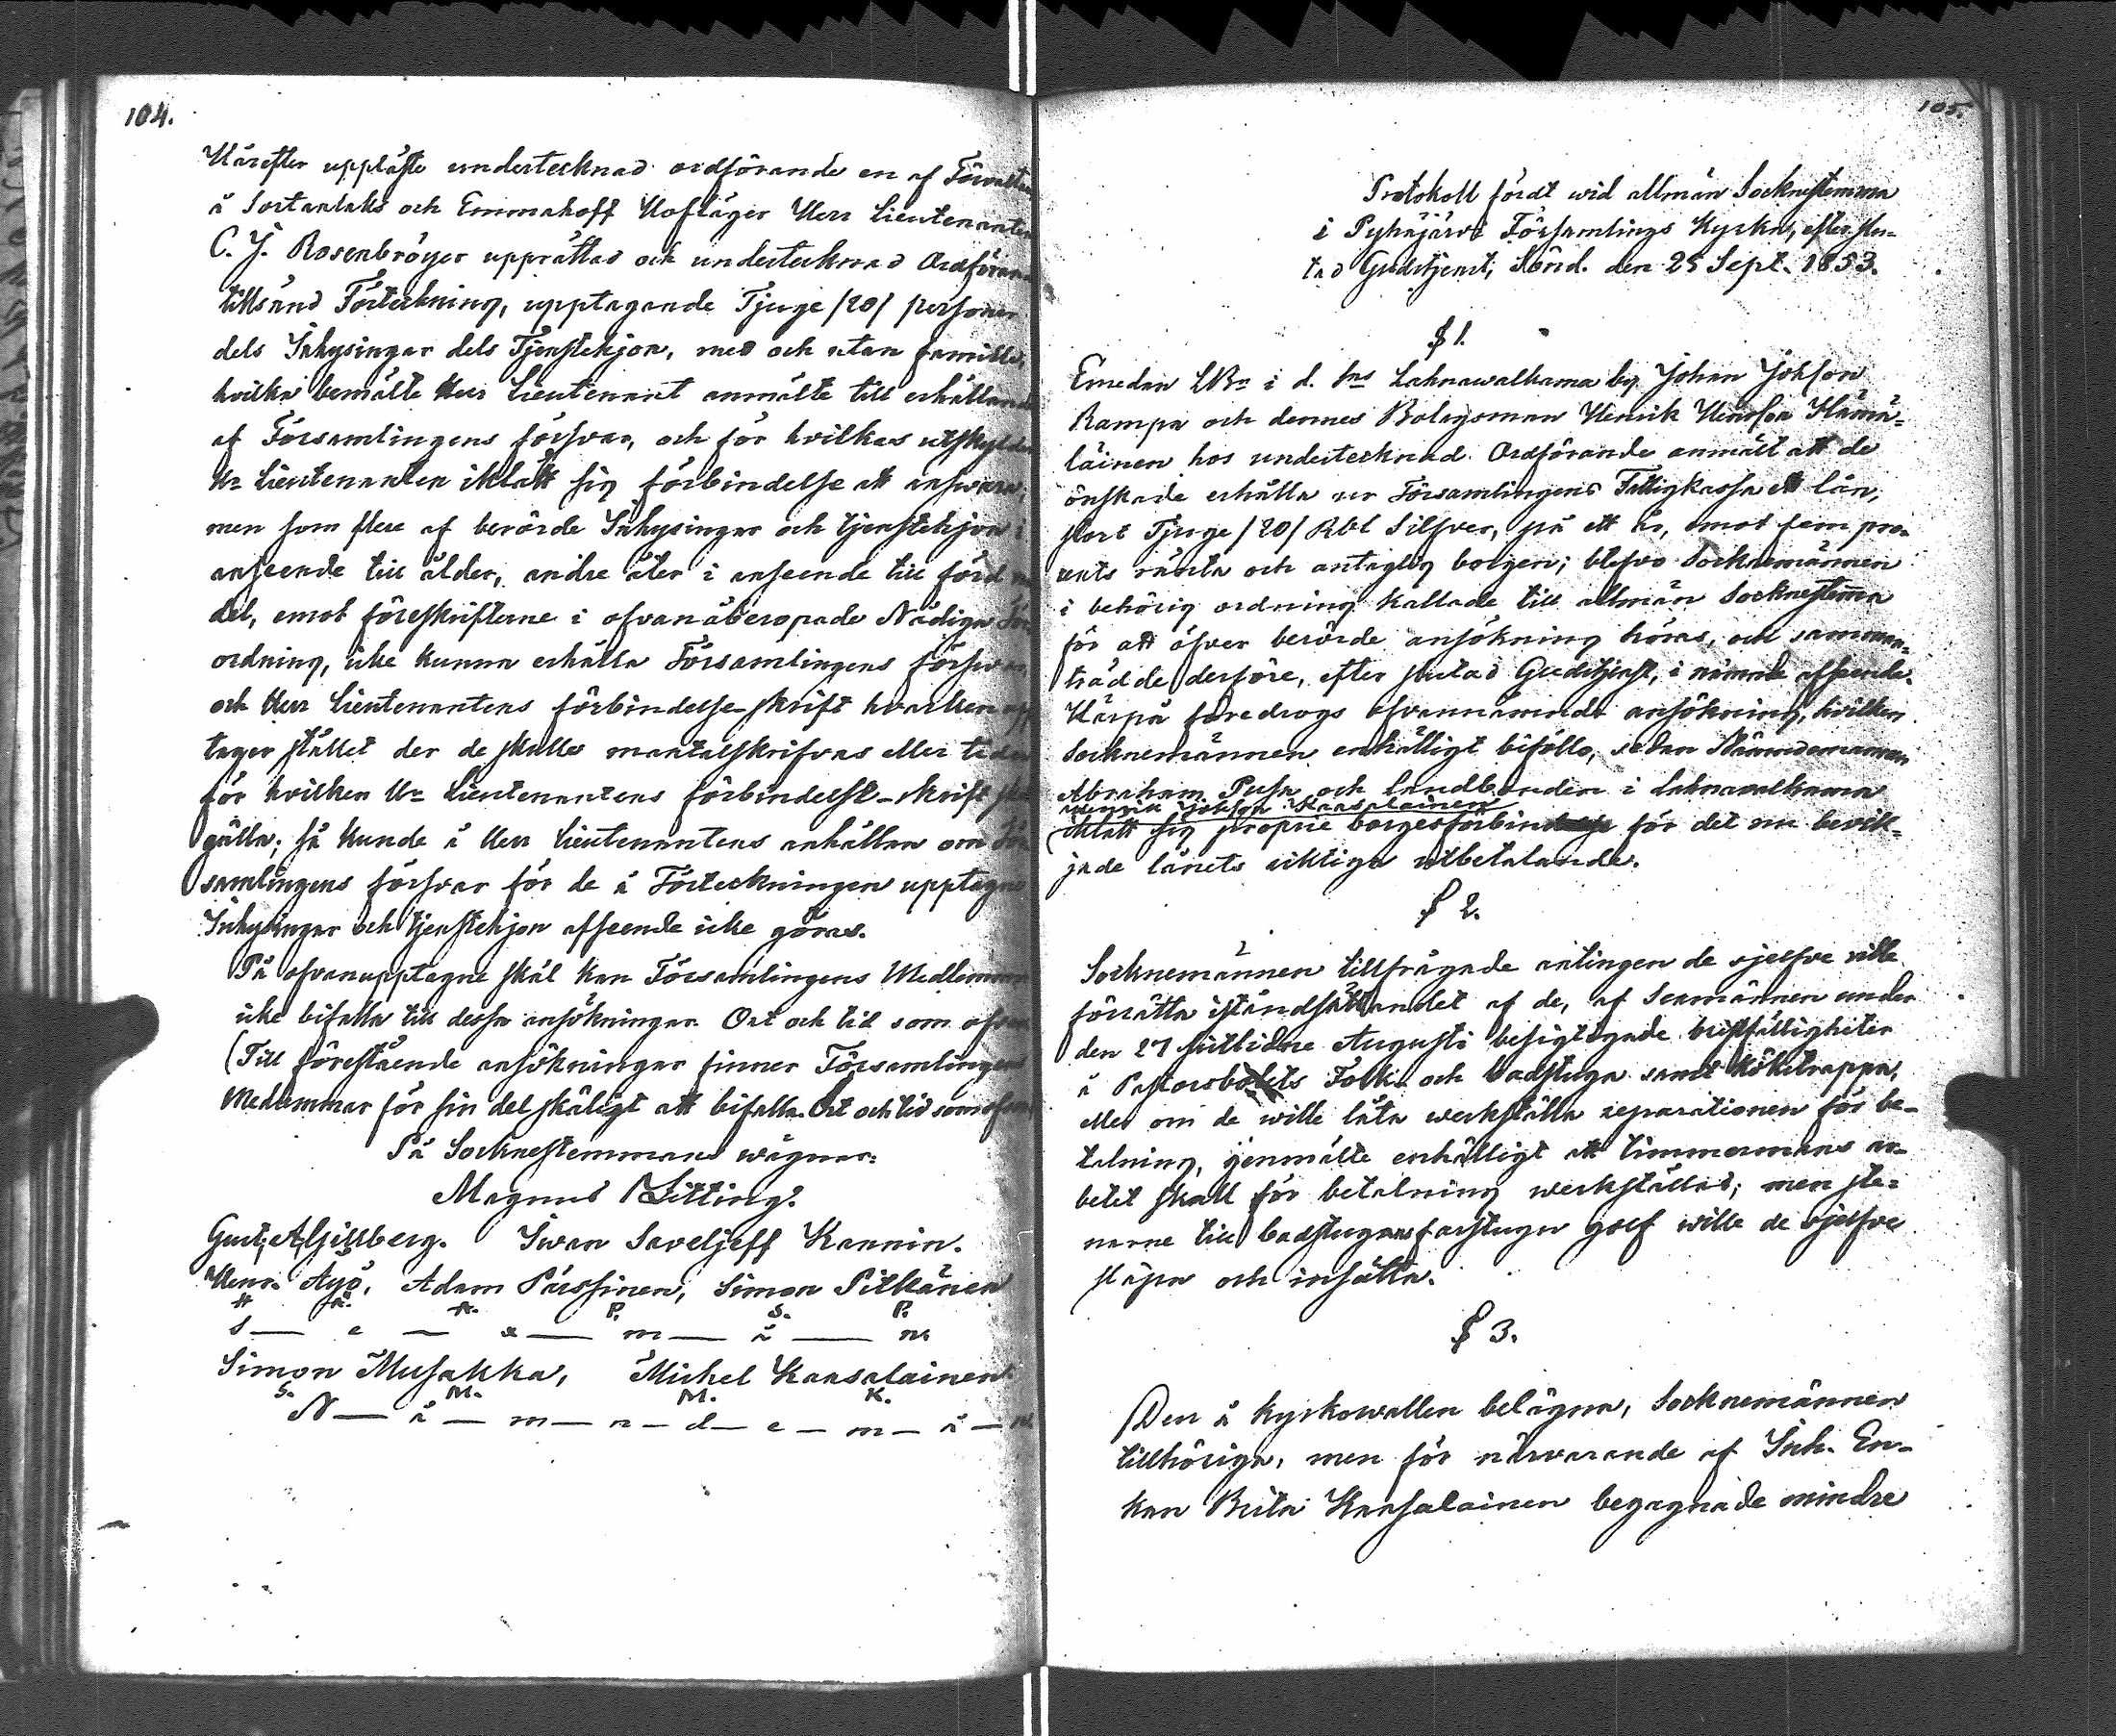 104.
Härefter uppläste undertecknad ordförande en af Förvaltaren
å Sortanlaks och Emmahoff Hofläger Herr Lieutenanten
C. J. Rosenbröyer upprättad och undertecknad Ordförande
tillsänd Förteckning, upptagande Tjuge /20/ personer
dels Inhysingar dels Tjenstehjon, med och utan familler,
hvilka bemälte Herr Lieutenant anmälte till erhållande
af Församlingens försvar, och för hvilkas utskylder
Hr Lieutenanten iklätt sig förbindelse att ansvara;
men som flere af berörde Inhysingar och tjenstehjon i
anseende till ålder, andre åter i anseende till förd van
del, emot föreskrifterne i ofvanåberopade Nådiga För
ordning, icke kunna erhålla Församlingens försvar,
och Herr Lieutenantens förbindelse-skrift hvarken upp
tager stället der de skulle mantalskrifvas eller tiden
för hvilken Hr Lieutenantens förbindelse-skrift skall
gälla; så kunde å Herr Lieutenantens anhållan om För
samlingens försvar för de å Förteckningen upptagne
Inhysingar och tjenstehjon afseende icke göras.
På ofvanupptagne skäl kan Församlingens Medlemmar
icke bifalla till dessa ansökningar. Ort och tid som ofvan
(Till förestående ansökningar finner Församlingens
Medlemmar för sin del skäligt att bifalla. Ort och tid som ofvan
På Socknestemmans wägnar:
Magnus Litting.
Gust. A. Gillberg. Iwan Saveljeff Kannin.
Henr. Äyö, Adam Pärssinen, Simon Pitkänen
H Ä. A. P. S. P.
S — e — x — m — ä — n.
Simon Musakka, Michel Kaasalainen.
S. M. M. K.
N — ä — m — n — d — e — m — ä — n.
105.
Protokoll fördt wid allmän Socknestemma
i Pyhäjärvi Församlings Kyrka, efter slu-
tad Gudstjenst, Sönd. den 25 Sept. 1853.
§ 1.
Emedan LBn i d. Sns Lahnawalkama by Johan Johsson
Rampa och dennes Bolagsman Henrik Henrsson Hämä-
läinen hos undertecknad Ordförande anmält att de
önskade erhålla ur Församlingens Fattigkassa ett lån,
stort Tjuge /20/ Rbl Silfver, på ett år, emot fem pro-
cents ränta och antaglig borgen; blefvo Socknemännen
i behörig ordning kallade till allmän Socknestemma
för att öfver berörde ansökning höras, och samman-
trädde derföre, efter slutad Gudstjenst, i nämnde afseende.
Härpå foredrogs ofvannämnde ansökning, hvilken
Socknemännen enhälligt biföllo, sedan Nämndemannen
Abraham Pusa och Landbonden i Lahnawalkama
Henrik Johsson Kaasalainen
iklätt sig proprie borgesförbindelse för det nu bevil-
jade lånets riktiga utbetalande.
§ 2.
Socknemännen tillfrågade antingen de sjelfve ville
förrätta iståndsättandet af de, af Sexmännen under
den 27 sistlidne Augusti besigtogade bristfälligheter
å Pastorsbolets Folk- och badstuga samt Kökstrappa,
eller om de wille låta werkställa reparationen för be-
talning, genmälte enhälligt att timmermans ar-
betet skall för betalning werkställas; men ste-
narne till badstugans farstugu golf wille de sjelfve
släpa och insätta.
§ 3.
Den å kyrkowallen belägna, Socknemännen
tillhöriga, men för närvarande af Inh. En-
kan Brita Kaasalainen begagnade mindre